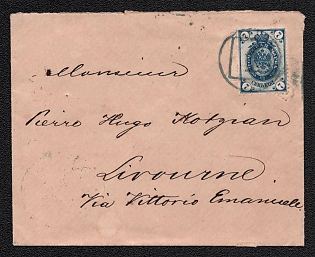 Monsieur
Pierre Hugo Kotzian
Livourne.
Via Vittorio Emanuele.
7 7